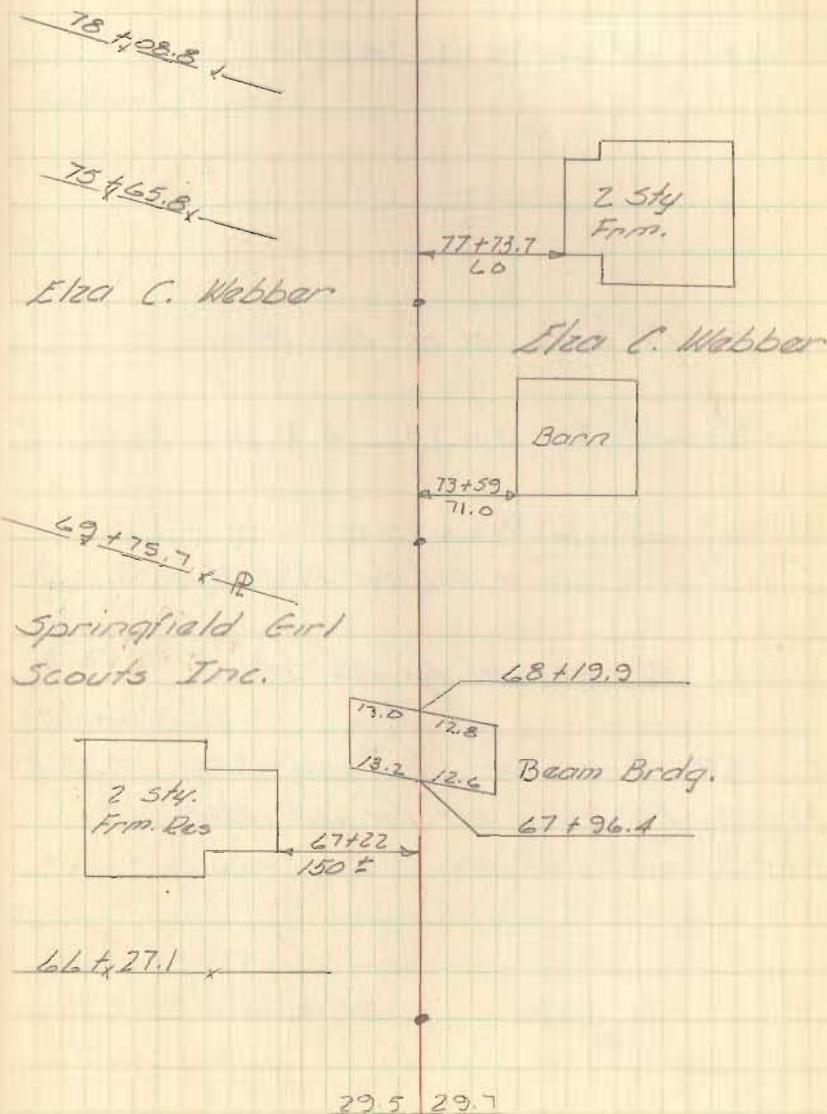 78+08.8
75+65.8
2 Sty
Frm.
77+73.7
60
Elza C. Webber
Elza C. Webber
Barn
73+59
71.0
69+75.7 PL
Springfield Girl
Scouts Inc.
68+19.9
13.0 12.8
13.2 12.6
Beam Brdg.
2 Sty.
Frm. Res
67+22
150 ±
67+96.4
66+27.1
29.5 29.7